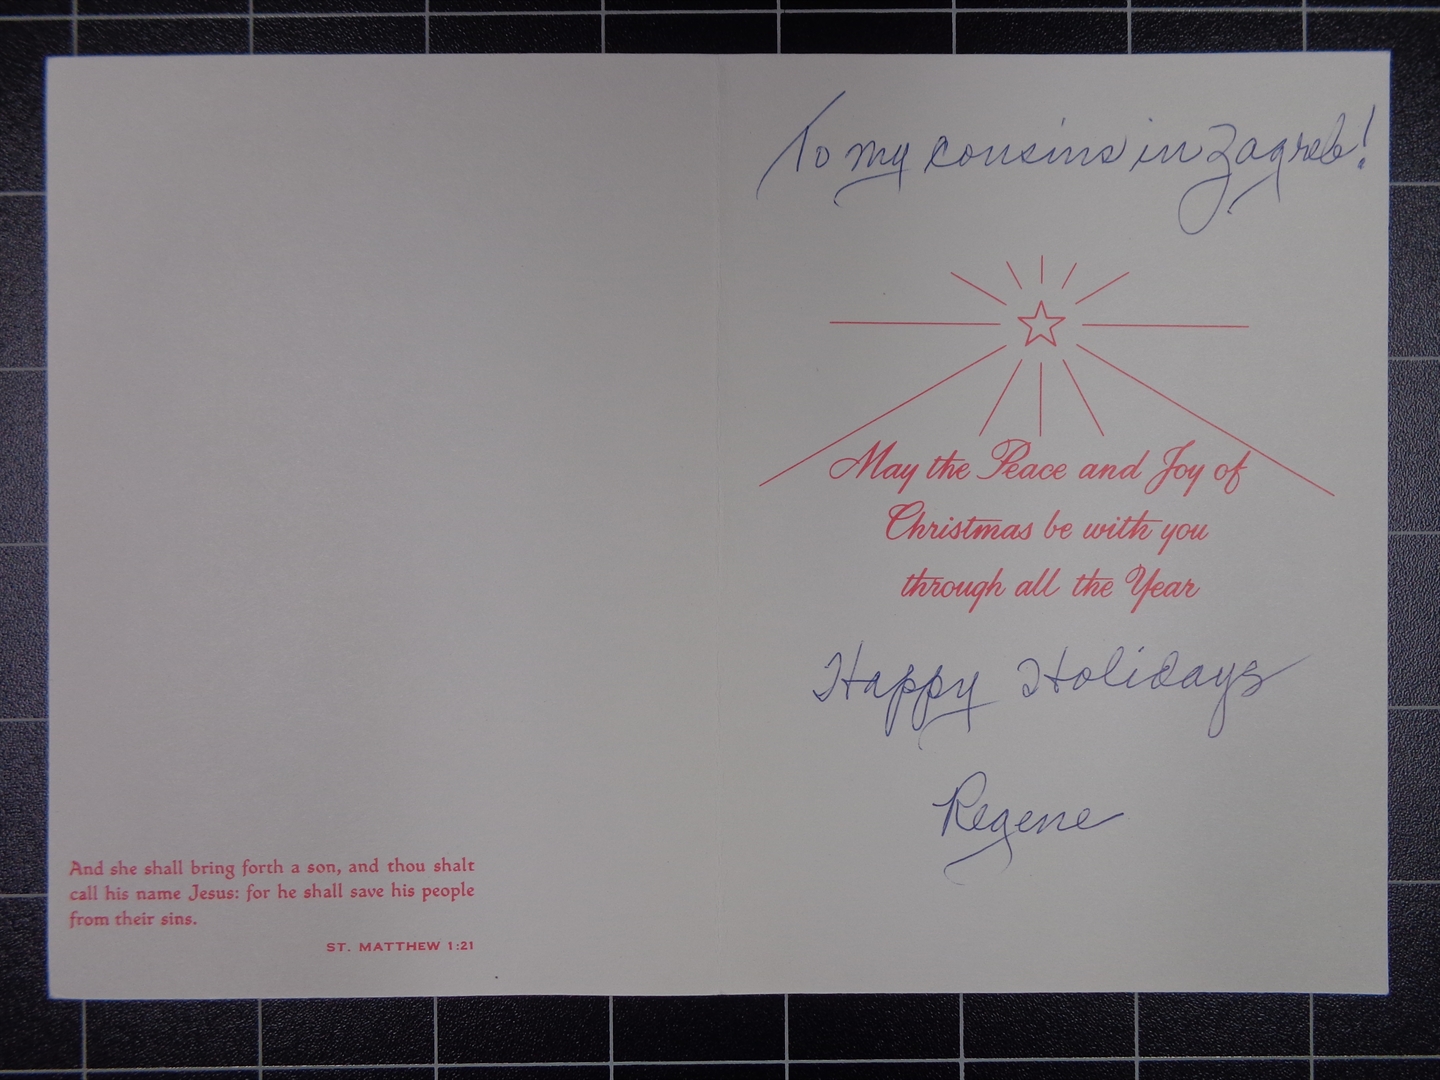 And she shall bring forth a son, and thou shalt
call his name Jesus: for he shall save his people
from their sins.
ST. MATTHEW 1:21
To my cousins in Zagreb!
May the Peace and Joy of
Christmas be with you
through all the Year
Happy Holidays
Regene